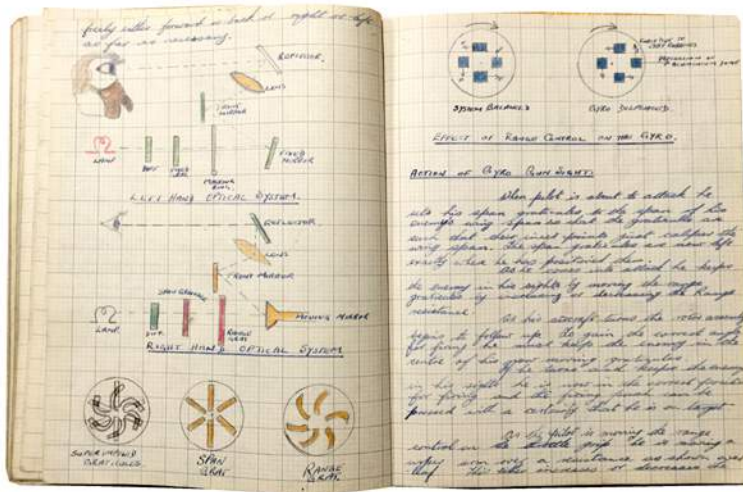 freely either forward or back or right or left
as far as necessary.
REFLECTOR
LENS
FRONT
MIRROR
LAMP
DIFF
FIXED
GRAT
MASKING
RING
FIXED
MIRROR
LEFT HAND OPTICAL SYSTEM.
REFLECTOR
LENS
FRONT MIRROR
SPAN GRATICULE
LAMP.
DIFF.
RANGE
GRAT.
MOVING MIRROR
RIGHT HAND OPTICAL SYSTEM
SUPERIMPOSED
GRATICULES.
SPAN
GRAT.
RANGE
GRAT.
DIRECTION OF
EDDY CURRENTS
ALUMINIUM DOME
SYSTEM BALANCED
GYRO DISPLACED.
EFFECT OF RANGE CONTROL ON THE GYRO.
ACTION OF GYRO GUN SIGHT.
When pilot is about to attack he
sets his span graticules to the span of his
enemy's wing span so that the graticules are
such that their inner points just eclipse the
wing span. The span graticules are now left
exactly where he has positioned them.
As he comes into attack he keeps
the enemy in his sights by moving the range
graticules by increasing or decreasing the Range
resistance.
As his aircraft turns the rotor assembly
begins to follow up. To gain the correct angle
for firing he must keep the enemy in the
centre of his now moving graticules
If he turns and keeps the enemy
in his sights he is now in the correct position
for firing and the firing push can be
pressed with a certainty that he is on target
As the pilot is moving the range
control on the throttle grip he is moving a
wiper arm over a resistance as shown over
leaf. This either increases or decreases the